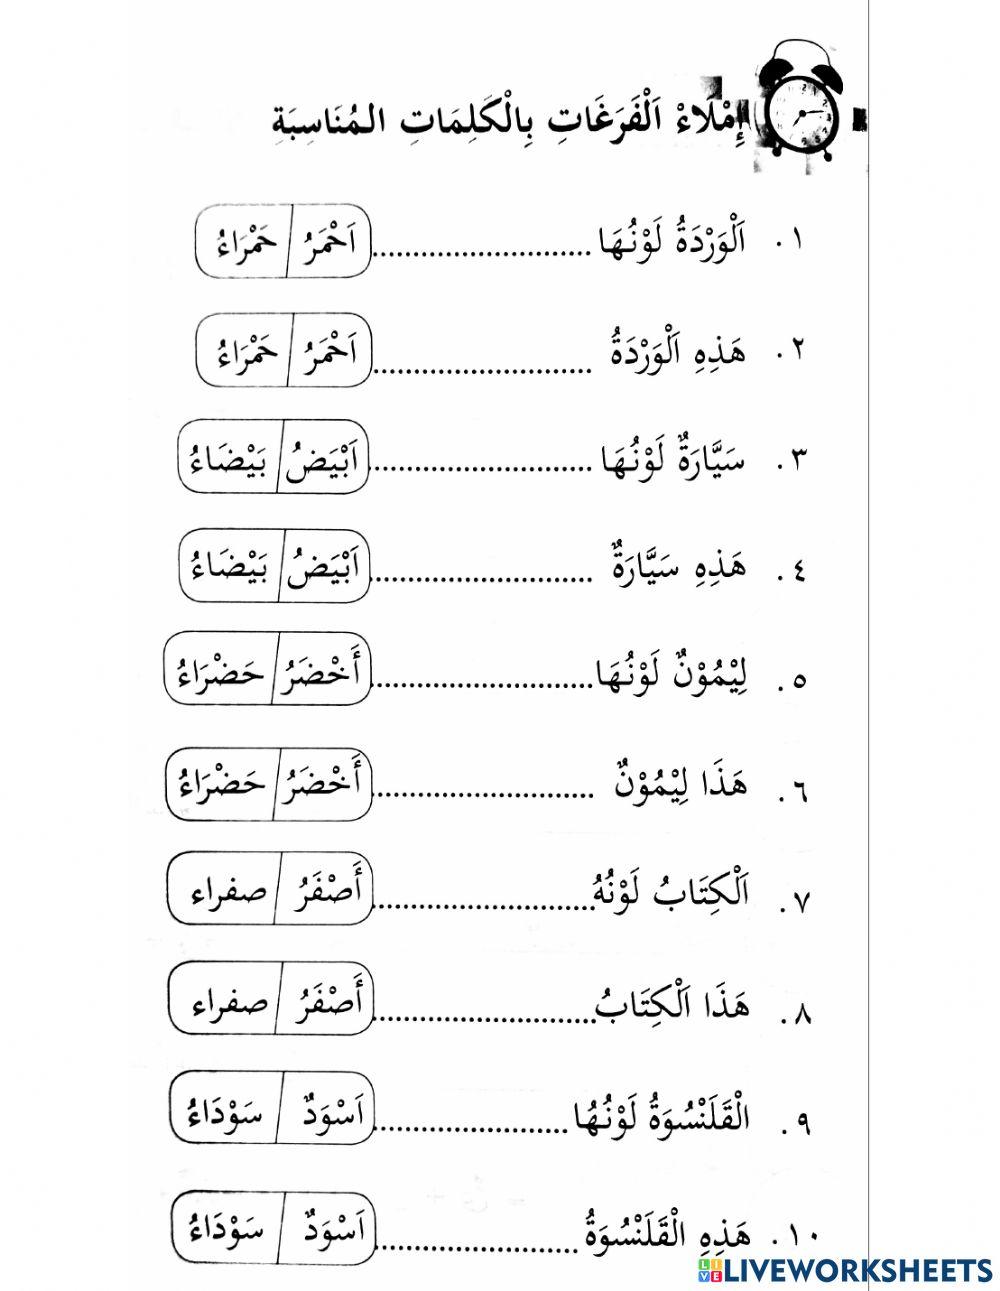 إِمْلَاءْ اَلْفَرَغَاتِ بِالْكَلِمَاتِ المُنَاسِبَةِ
١. اَلْوَرْدَةُ لَوْنُهَا ........................... اَحْمَرُ / حَمْرَاءُ
٢. هَذِهِ اَلْوَرْدَةُ ........................... اَحْمَرُ / حَمْرَاءُ
٣. سَيَّارَةٌ لَوْنُهَا ........................... اَبْيَضُ / بَيْضَاءُ
٤. هَذِهِ سَيَّارَةٌ ........................... اَبْيَضُ / بَيْضَاءُ
٥. لِيْمُوْنٌ لَوْنُهَا ........................... أَخْضَرُ / حَضْرَاءُ
٦. هَذَا لِيْمُوْنٌ ........................... أَخْضَرُ / حَضْرَاءُ
٧. اَلْكِتَابُ لَوْنُهُ ........................... أَصْفَرُ / صفراء
٨. هَذَا اَلْكِتَابُ ........................... أَصْفَرُ / صفراء
٩. الْقَلَنْسُوَةُ لَوْنُهَا ........................... اَسْوَدٌ / سَوْدَاءُ
١٠. هَذِهِ الْقَلَنْسُوَةُ ........................... اَسْوَدٌ / سَوْدَاءُ
LIVEWORKSHEETS